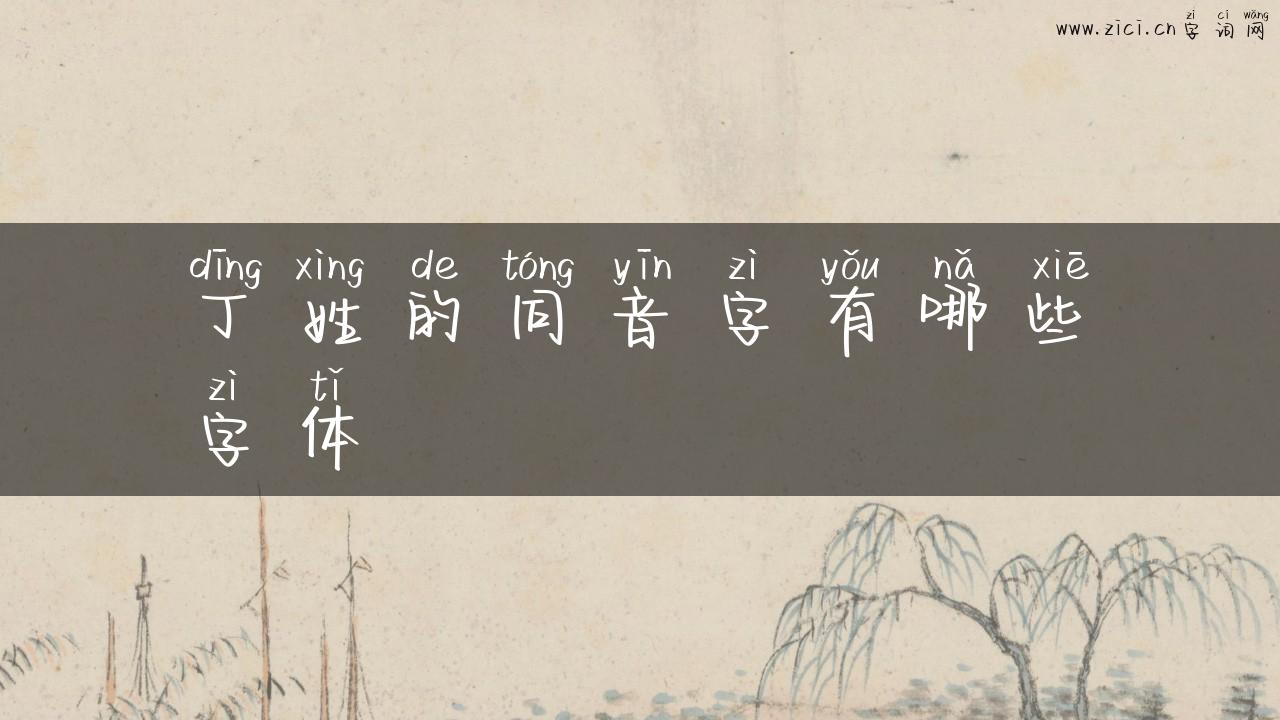 zì cí wǎng
www.zici.cn 字 词 网
dīng xìng de tóng yīn zì yǒu nǎ xiē
丁 姓 的 同 音 字 有 哪 些
zì tǐ
字 体